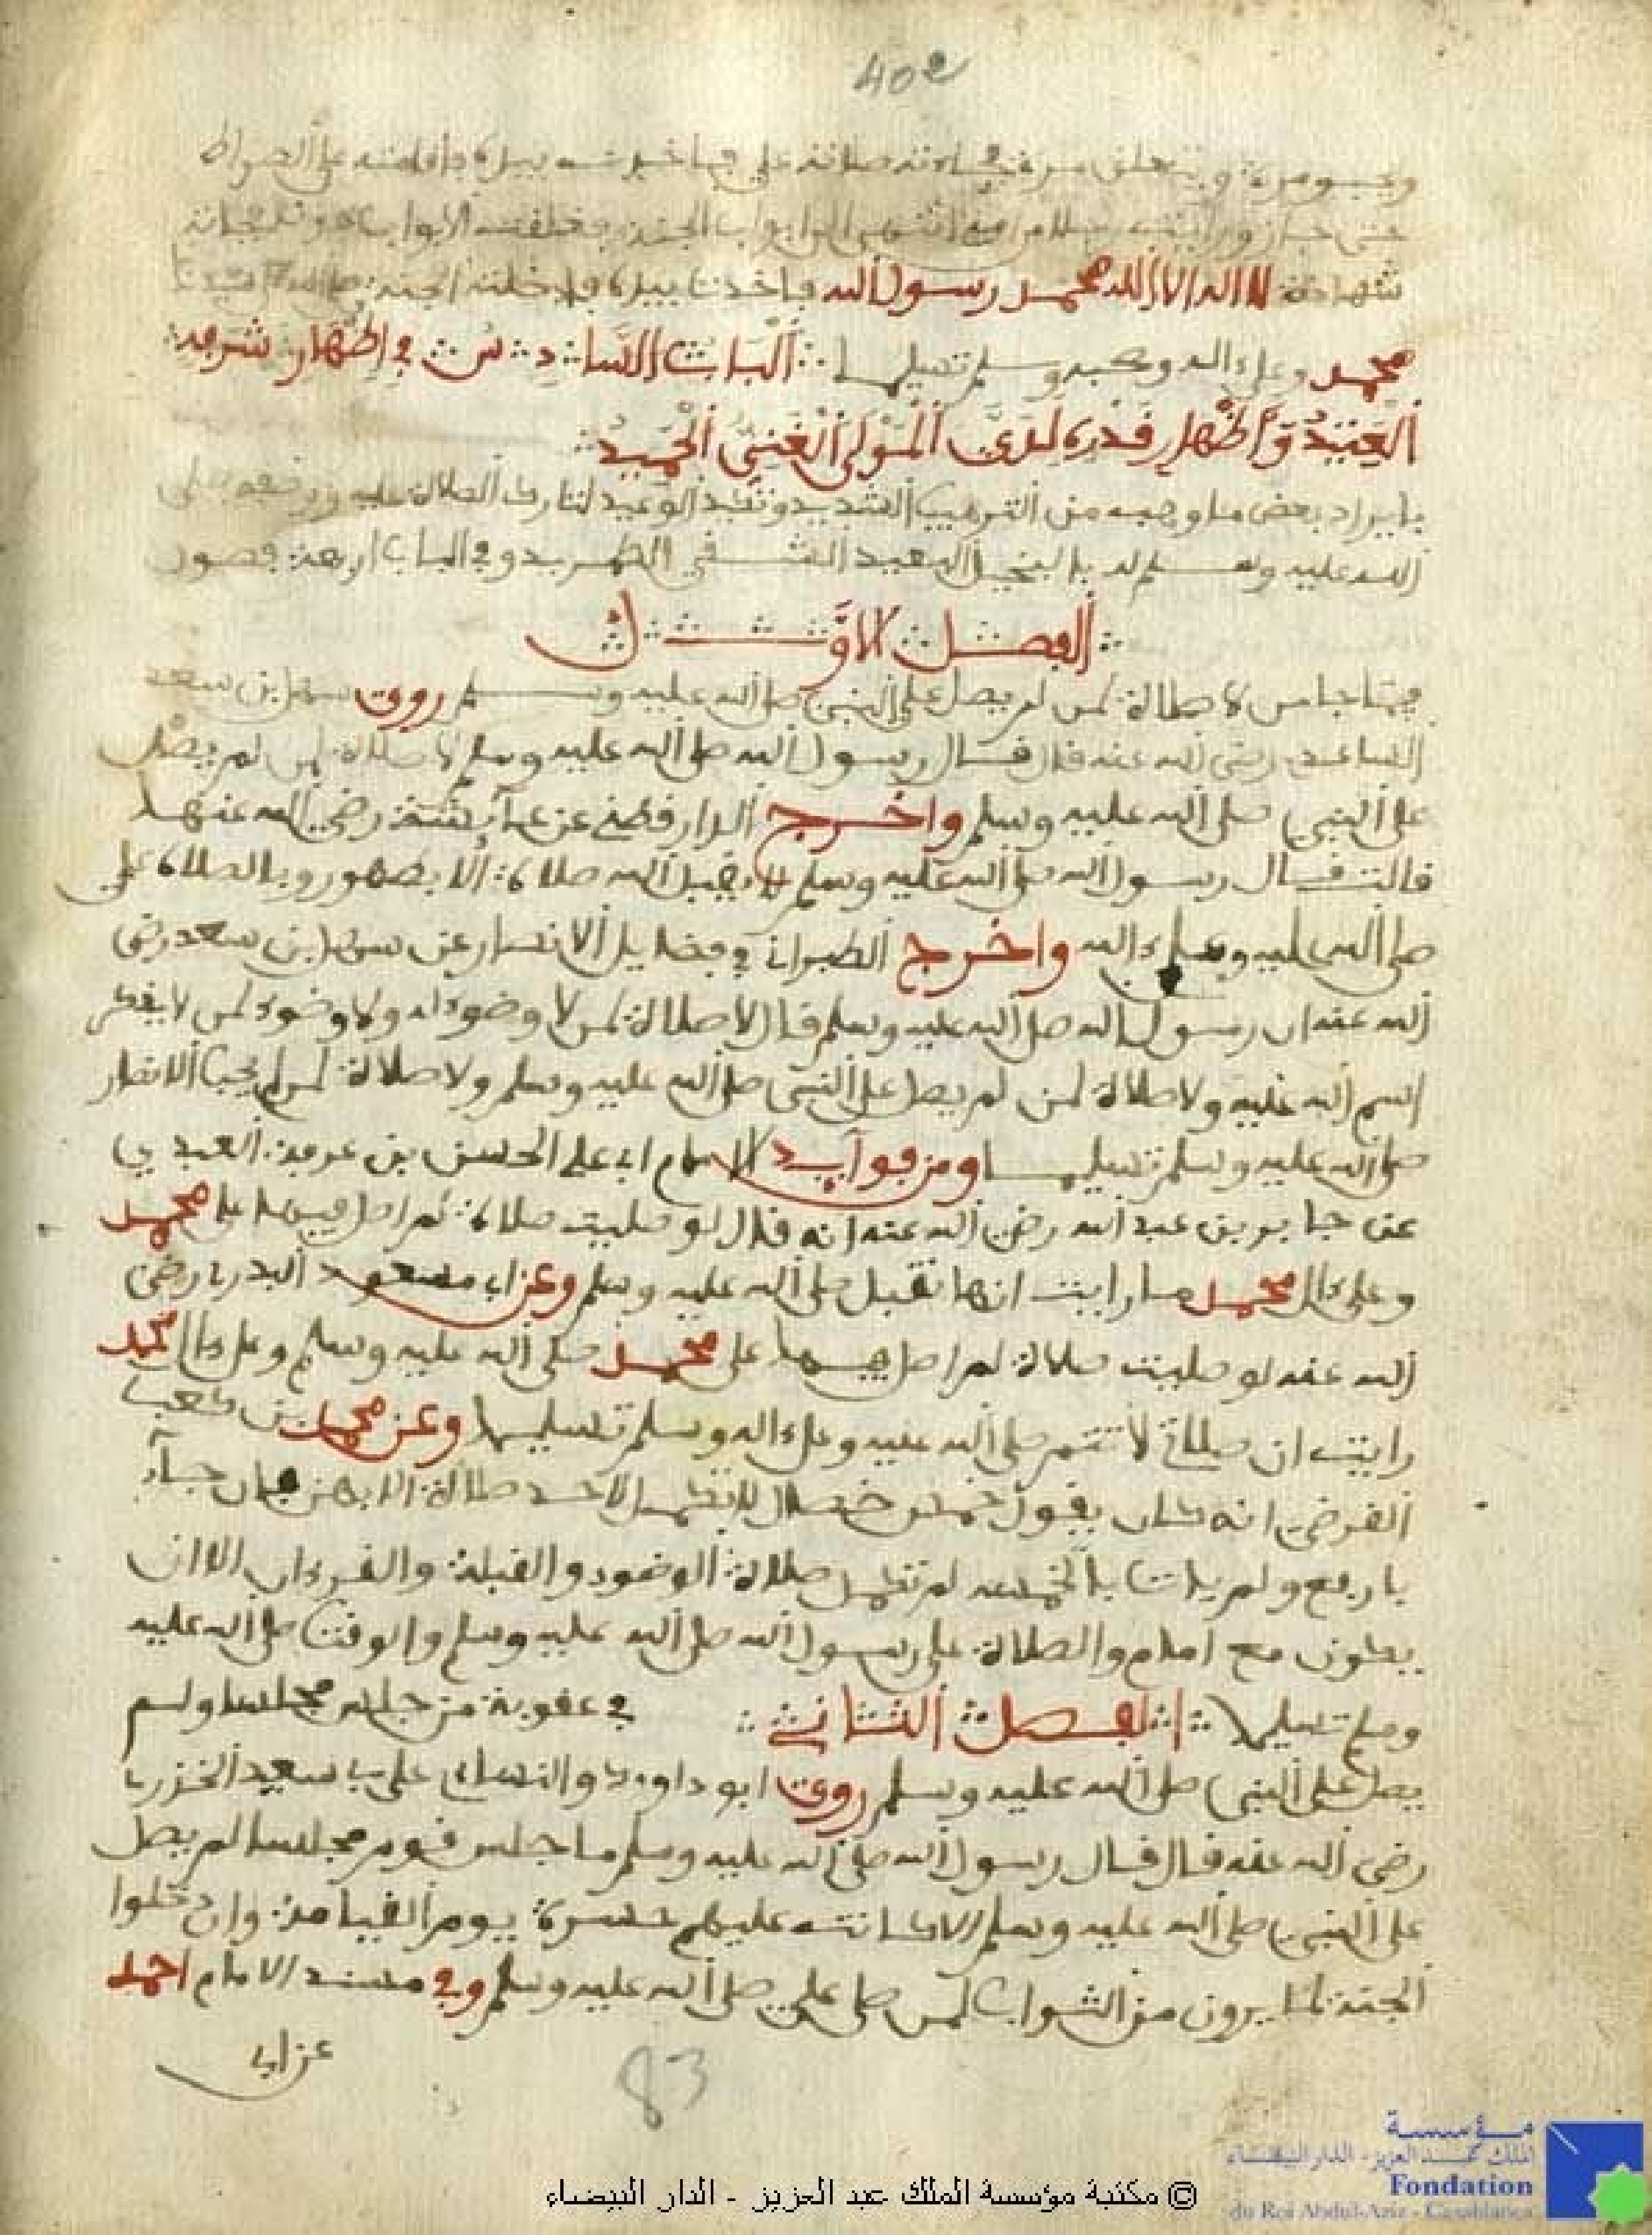 402
ويحبو مرة ويتعلق مرة فجاءته صلاته علي فاخذت بيده فاقامته على الصراط
حتى جاز ورايت رجلا من امتي انتهى الى ابواب الجنة فغلقت الابواب دونه فجاءته
شهادة لا اله الا الله محمد رسول الله فاخذت بيده فادخلته الجنة صلى الله على سيدنا
محمد وعلى ءاله وصحبه وسلم تسليما الباب السادس في اظهار شرف
العبيد واظهار قدره لدى المولى الغني الحميد
بايراد بعض ما وجب من الترهيب الشديد ونكيد الوعيد لتارك الصلاة عليه ووصفه صلى
الله عليه وسلم له بالبخيل البعيد الشقي الطريد وفي الباب اربعة فصول
الفصل الاول
فيما جا من لا صلاة لمن لم يصل على النبي صلى الله عليه وسلم روى سهل بن سعد
الساعدي رضي الله عنه قال قال رسول الله صلى الله عليه وسلم لا صلاة لمن لم يصل
على النبي صلى الله عليه وسلم واخرج الدارقطني عن عايشة رضي الله عنها
قالت قال رسول الله صلى الله عليه وسلم لا يقبل الله صلاة الا بطهور وبالصلاة علي
صلى الله عليه وعلى ءاله واخرج الطبراني في فضايل الانصار عن سهل بن سعد رضي
الله عنه ان رسول الله صلى الله عليه وسلم قال لا صلاة لمن لا وضوء له ولا وضوء لمن لا يذكر
اسم الله عليه ولا صلاة لمن لم يصل على النبي صلى الله عليه وسلم ولا صلاة لمن لم يحب الانصار
صلى الله عليه وسلم تسليما ومن فوايد الامام ابي علي الحسن بن عرفة العبدي
عن جابر بن عبد الله رضي الله عنه انه قال لو صليت صلاة لم اصل فيها على محمد
وعلى ءال محمد ما رايت انها تقبل صلى الله عليه وسلم وعن ابي مسعود البدري رضي
الله عنه لو صليت صلاة لم اصل فيها على محمد صلى الله عليه وسلم وعلى ءال محمد
رايت ان صلاتي لا تتم صلى الله عليه وعلى ءاله وسلم تسليما وعن محمد بن كعب
القرضي انه كان يقول خمس خصال لا تكمل لاحد صلاة الا بهن فان جآء
باربع ولم يات بالخمس لم تكمل صلاة الوضوء والقبلة والقرءان الا ان
يكون مع امام والصلاة على رسول الله صلى الله عليه وسلم والوقت صلى الله عليه
وسلم تسليما الفصل الثاني في عقوبة من جلس مجلسا ولم
يصل على النبي صلى الله عليه وسلم روى ابو داوود والنساي عن ابي سعيد الخزري
رضي الله عنه قال قال رسول الله صلى الله عليه وسلم ما جلس قوم مجلسا لم يصل
على النبي صلى الله عليه وسلم الا كانت عليهم حسرة يوم القيامة وان دخلوا
الجنة لما يرون من الثواب لمن صلى علي صلى الله عليه وسلم وفي مسند الامام احمد
عن ابي
83
مؤسسة
الملك عبد العزيز - الدار البيضاء
Fondation
du Roi Abdul-Aziz - Casablanca
© مكتبة مؤسسة الملك عبد العزيز - الدار البيضاء